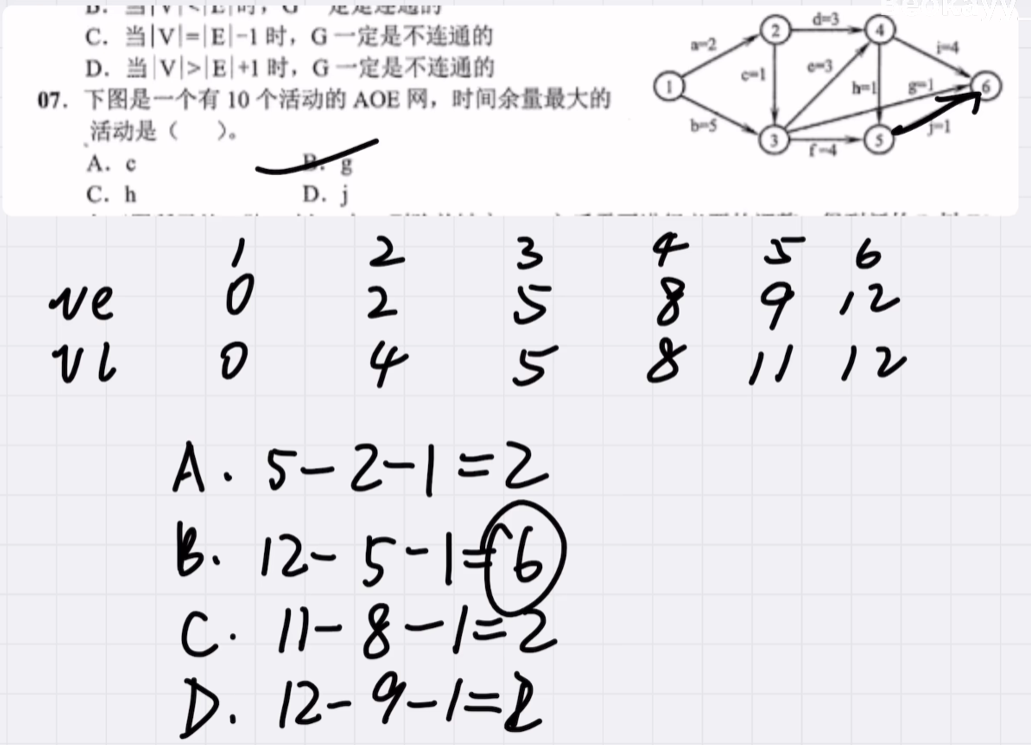 C. 当|V|=|E|-1 时，G 一定是不连通的
D. 当|V|>|E|+1 时，G 一定是不连通的
07. 下图是一个有 10 个活动的 AOE 网，时间余量最大的
活动是（ ）。
A. c
B. g
C. h
D. j
a=2
b=5
c=1
d=3
e=3
f=4
g=1
h=1
i=4
j=1
1
2
3
4
5
6
1 2 3 4 5 6
ve 0 2 5 8 9 12
vl 0 4 5 8 11 12
A. 5-2-1=2
B. 12-5-1=6
C. 11-8-1=2
D. 12-9-1=2